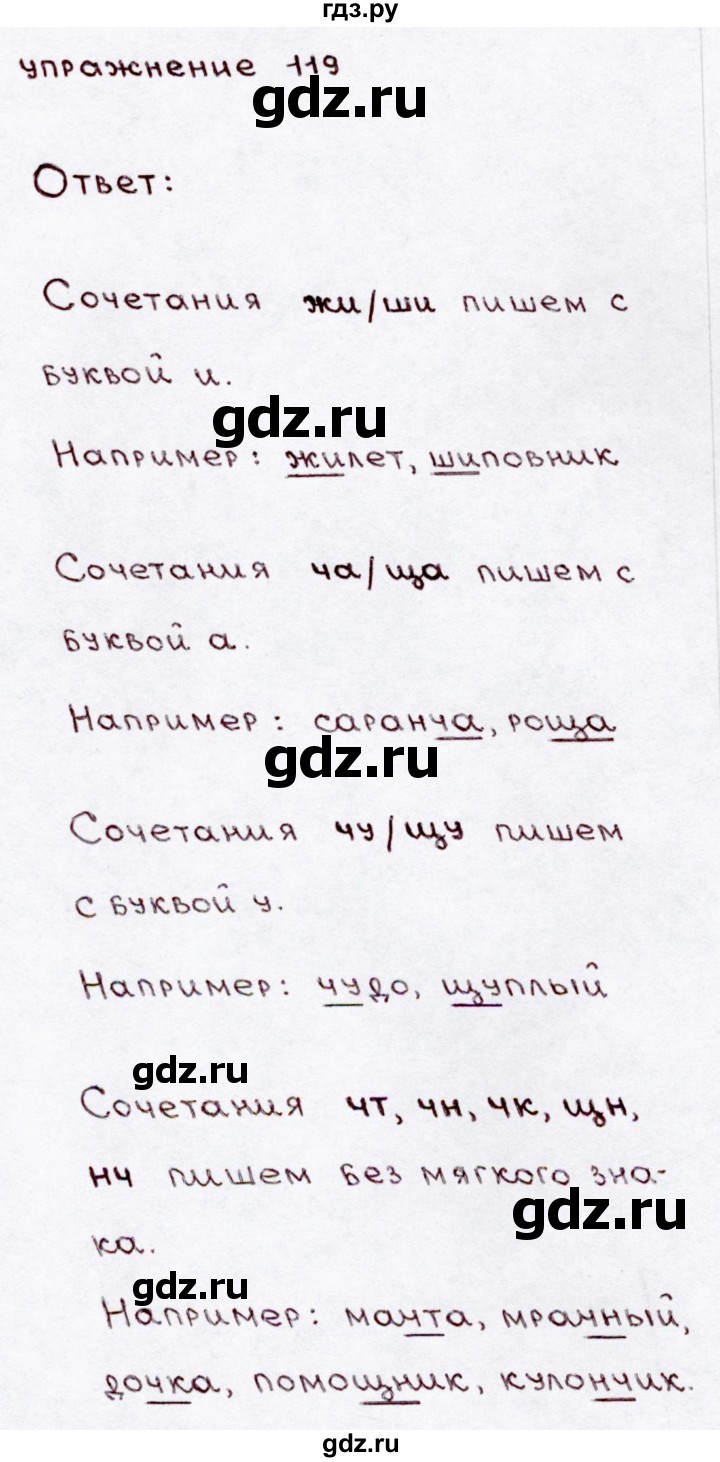 гдз.ру
упражнение 119
gdz.ru
Ответ:
Сочетания жи/ши пишем с
буквой и.
gdz.ru
Например: жилет, шиповник
Сочетания ча/ща пишем с
буквой а.
Например: саранча, роща
gdz.ru
Сочетания чу/щу пишем
с буквой у.
Например: чудо, щуплый
gdz.ru
Сочетания чт, чн, чк, щн,
нч пишем без мягкого зна-
gdz.ru
ка.
gdz.ru
Например: мачта, мрачный,
дочка, помощник, купончик.
gdz.ru